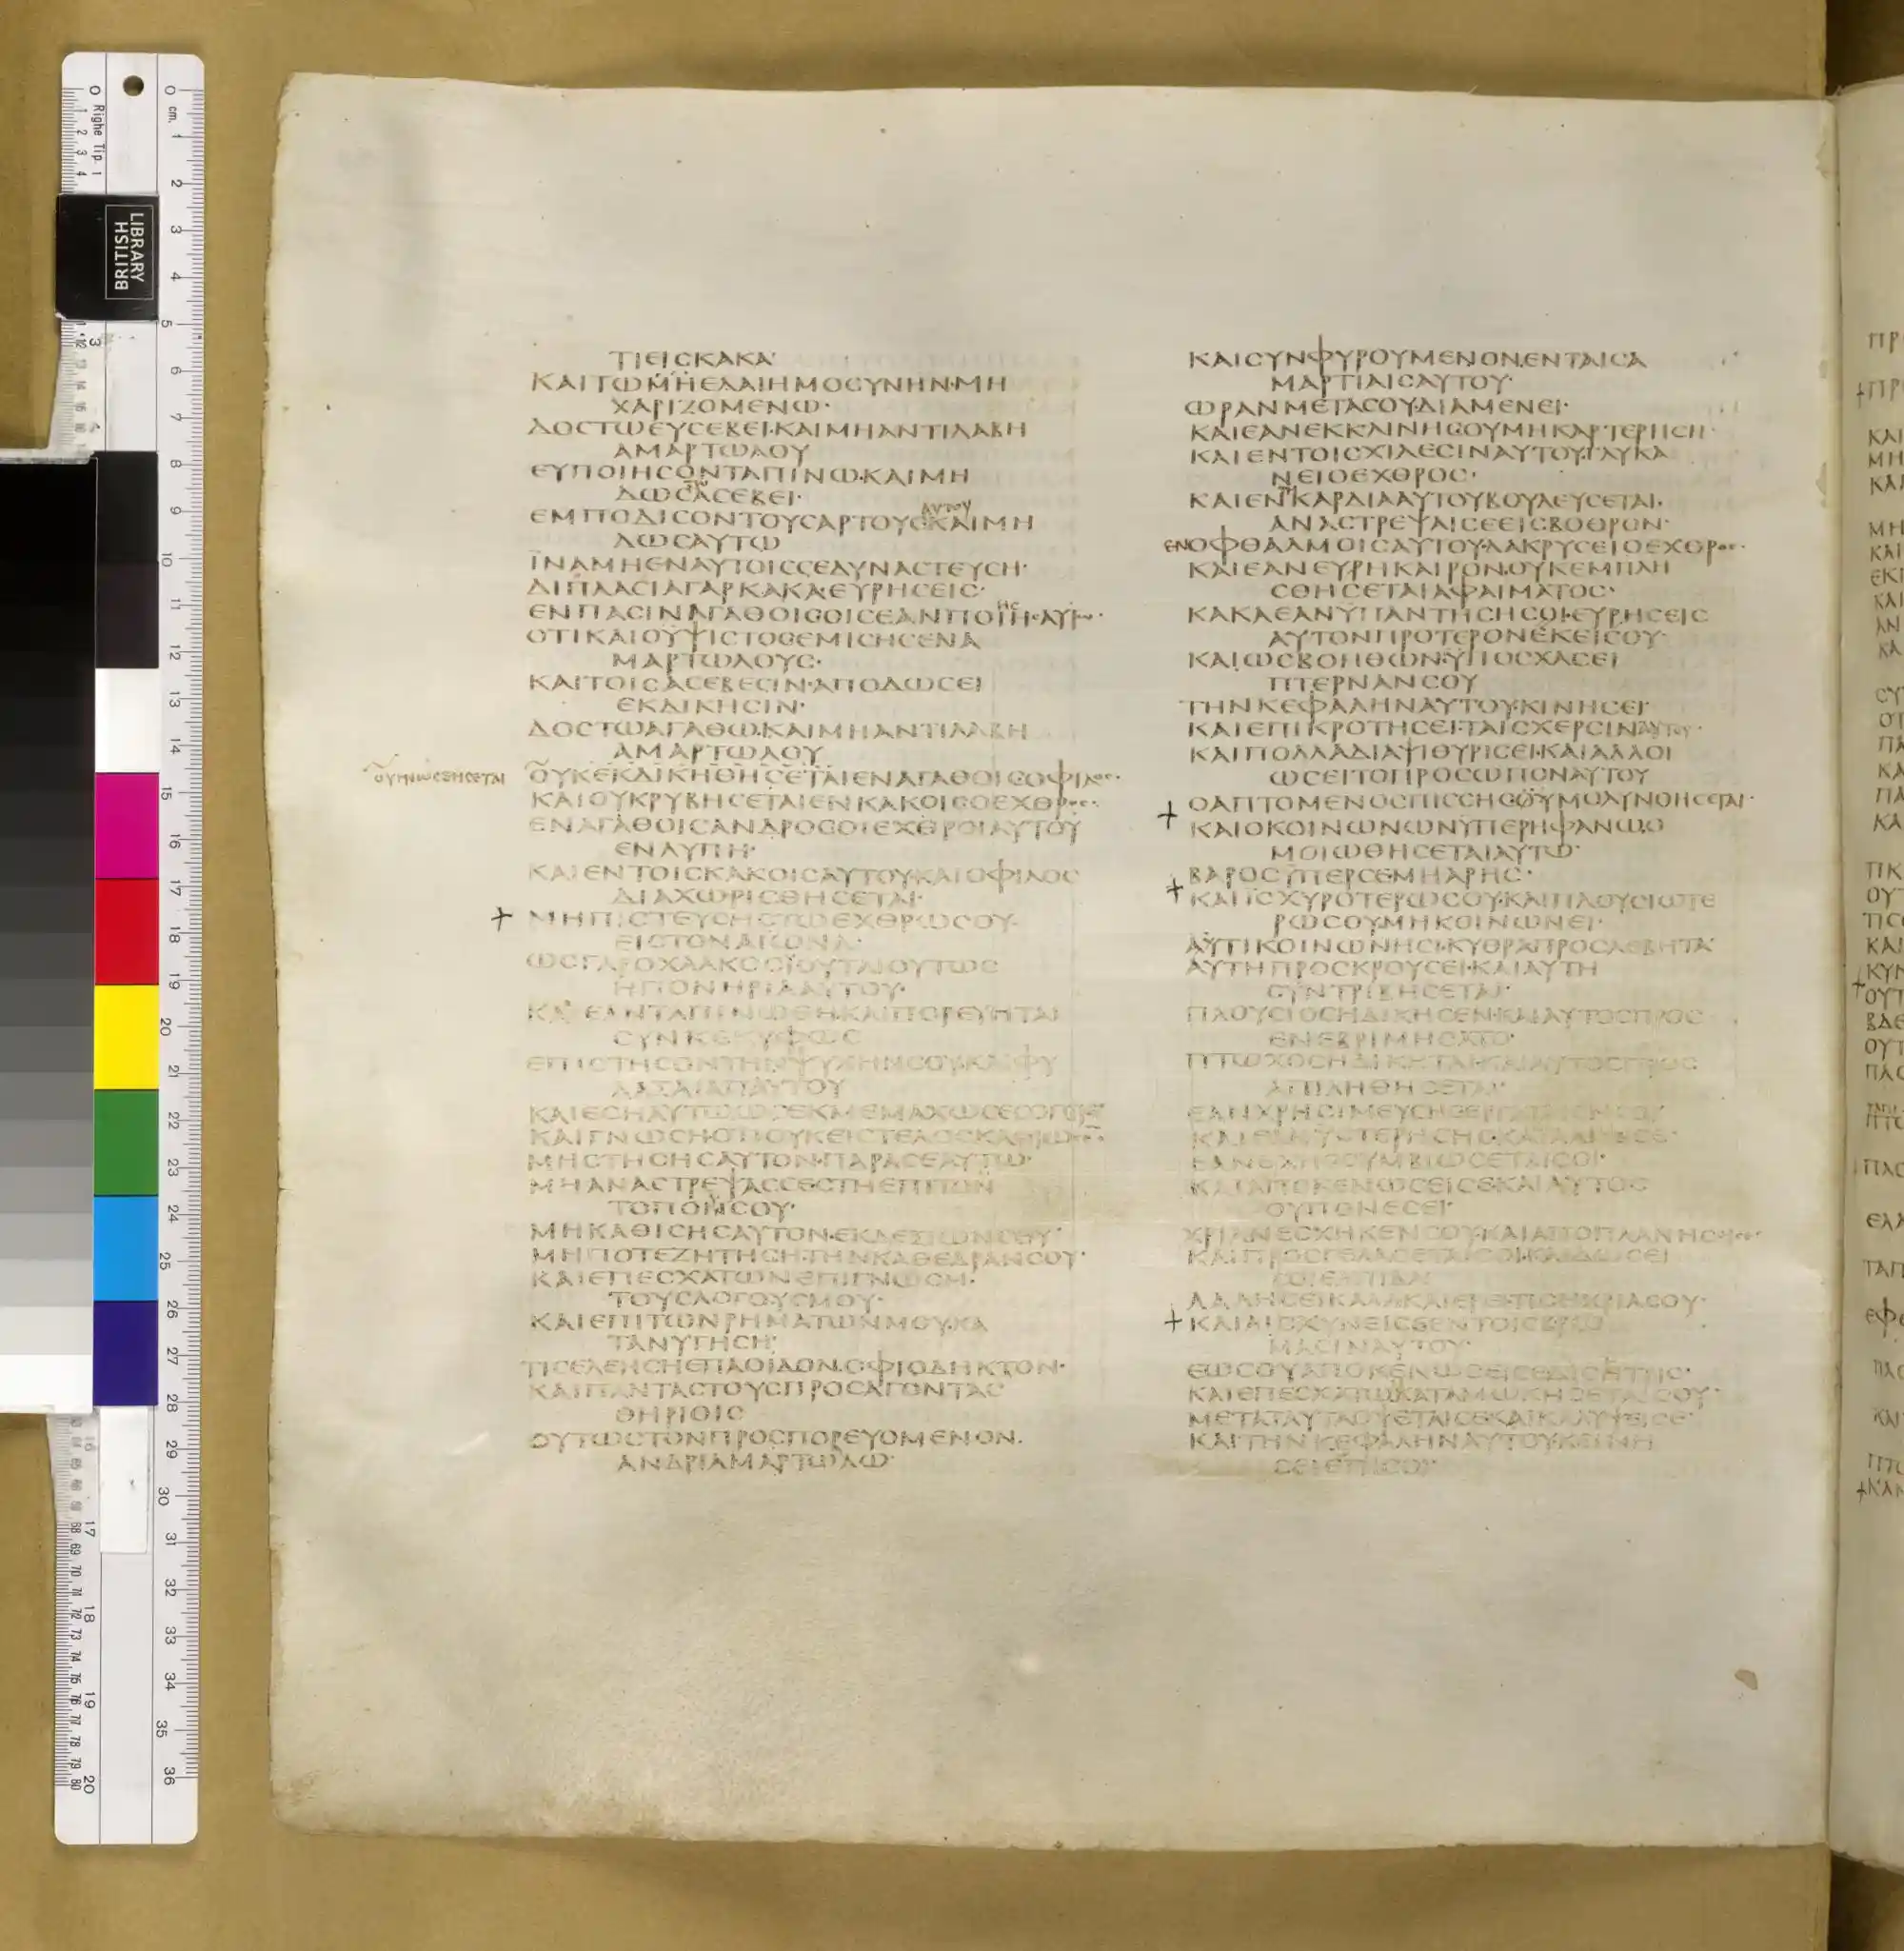 ΤΙΕΙϹΚΑΚΑ·
ΚΑΙΤΩΜΗΕΛΑΙΗΜΟϹΥΝΗΝ·ΜΗ
ΧΑΡΙΖΟΜΕΝΩ·
ΔΟϹΤΩΕΥϹΕΒΕΙ·ΚΑΙΜΗΑΝΤΙΛΑΒΗ
ΑΜΑΡΤΩΛΟΥ
ΕΥΠΟΙΗϹΟΝΤΑΠΙΝΩ·ΚΑΙΜΗ
ΔΩϹΑϹΕΒΕΙ·
ΑΥΤΟΥ
ΕΜΠΟΔΙϹΟΝΤΟΥϹΑΡΤΟΥϹΚΑΙΜΗ
ΔΩϹΑΥΤΩ
ΪΝΑΜΗΕΝΑΥΤΟΙϹϹΕΔΥΝΑϹΤΕΥϹΗ·
ΔΙΠΛΑϹΙΑΓΑΡΚΑΚΑ·ΕΥΡΗϹΕΙϹ·
ΕΝΠΑϹΙΝΑΓΑΘΟΙϹΟΙϹΕΑΝΠΟΙΗϹΑΥΤΩ·
ΟΤΙΚΑΙΟΥΨΙϹΤΟϹΕΜΙϹΗϹΕΝΑ
ΜΑΡΤΩΛΟΥϹ·
ΚΑΙΤΟΙϹΑϹΕΒΕϹΙΝ·ΑΠΟΔΩϹΕΙ
ΕΚΔΙΚΗϹΙΝ·
ΔΟϹΤΩΑΓΑΘΩ·ΚΑΙΜΗΑΝΤΙΛΑΒΗ
ΑΜΑΡΤΩΛΟΥ
ΟΥΚΕΚΔΙΚΗΘΗϹΕΤΑΙΕΝΑΓΑΘΟΙϹΟΦΙΛΟϹ·
ΚΑΙΟΥΚΡΥΒΗϹΕΤΑΙΕΝΚΑΚΟΙϹΟΕΧΘΡΟϹ·
ΕΝΑΓΑΘΟΙϹΑΝΔΡΟϹΟΙΕΧΘΡΟΙΑΥΤΟΥ
ΕΝΛΥΠΗ·
ΚΑΙΕΝΤΟΙϹΚΑΚΟΙϹΑΥΤΟΥ·ΚΑΙΟΦΙΛΟϹ
ΔΙΑΧΩΡΙϹΘΗϹΕΤΑΙ·
ΜΗΠΙϹΤΕΥϹΗϹΤΩΕΧΘΡΩϹΟΥ·
ΕΙϹΤΟΝΑΙΩΝΑ·
ΩϹΓΑΡΟΧΑΛΚΟϹΪΟΥΤΑΙΟΥΤΩϹ
ΗΠΟΝΗΡΙΑΑΥΤΟΥ·
ΚΑΙΕΑΝΤΑΠΙΝΩΘΗ·ΚΑΙΠΟΡΕΥΗΤΑΙ
ϹΥΝΚΕΚΥΦΩϹ
ΕΠΙϹΤΗϹΟΝΤΗΝΨΥΧΗΝϹΟΥ·ΚΑΙΦΥ
ΛΑΞΑΙΑΠΑΥΤΟΥ
ΚΑΙΕϹΗΑΥΤΩ
ΚΑΙΓΝΩϹΗ·ΟΤΙΟΥΚΕΙϹΤΕΛΟϹ
ΜΗϹΤΗϹΗϹΑΥΤΟΝ·ΠΑΡΑϹΕΑΥΤΩ·
ΜΗΑΝΑϹΤΡΕΨΑϹϹΕϹΤΗΕΠΙΤΟΝ
ΤΟΠΟΝϹΟΥ·
ΜΗΚΑΘΙϹΗϹΑΥΤΟΝ·ΕΚΔΕΞΙΩΝϹΟΥ·
ΜΗΠΟΤΕΖΗΤΗϹΗ·ΤΗΝΚΑΘΕΔΡΑΝϹΟΥ·
ΚΑΙΕΠΕϹΧΑΤΩΝΕΠΙΓΝΩϹΗ·
ΤΟΥϹΛΟΓΟΥϹΜΟΥ·
ΚΑΙΕΠΙΤΩΝΡΗΜΑΤΩΝΜΟΥ·ΚΑ
ΤΑΝΥΓΗϹΗ·
ΤΙϹΕΛΕΗϹΗΕΠΑΟΙΔΟΝ·ΟΦΙΟΔΗΚΤΟΝ·
ΚΑΙΠΑΝΤΑϹΤΟΥϹΠΡΟϹΑΓΟΝΤΑϹ
ΘΗΡΙΟΙϹ
ΟΥΤΩϹΤΟΝΠΡΟϹΠΟΡΕΥΟΜΕΝΟΝ·
ΑΝΔΡΙΑΜΑΡΤΩΛΩ·
ΚΑΙϹΥΝΦΥΡΟΥΜΕΝΟΝ·ΕΝΤΑΙϹΑ
ΜΑΡΤΙΑΙϹΑΥΤΟΥ·
ΩΡΑΝΜΕΤΑϹΟΥ·ΔΙΑΜΕΝΕΙ·
ΚΑΙΕΑΝΕΚΚΛΙΝΗϹΟΥΜΗΚΑΡΤΕΡΗϹΗ·
ΚΑΙΕΝΤΟΙϹΧΙΛΕϹΙΝΑΥΤΟΥ·ΓΛΥΚΑ
ΝΕΙΟΕΧΘΡΟϹ·
ΚΑΙΕΝΚΑΡΔΙΑΑΥΤΟΥΒΟΥΛΕΥϹΕΤΑΙ·
ΑΝΑϹΤΡΕΨΑΙϹΕΕΙϹΒΟΘΡΟΝ·
ΕΝΟΦΘΑΛΜΟΙϹΑΥΤΟΥ·ΔΑΚΡΥϹΕΙΟΕΧΘΡΟϹ·
ΚΑΙΕΑΝΕΥΡΗΚΑΙΡΟΝ·ΟΥΚΕΜΠΛΗ
ϹΘΗϹΕΤΑΙΑΦΑΙΜΑΤΟϹ·
ΚΑΚΑΕΑΝΥΠΑΝΤΗϹΗϹΟΙ·ΕΥΡΗϹΕΙϹ
ΑΥΤΟΝΠΡΟΤΕΡΟΝΕΚΕΙϹΟΥ·
ΚΑΙΩϹΒΟΗΘΩΝ·ΥΠΟϹΧΑϹΕΙ
ΠΤΕΡΝΑΝϹΟΥ
ΤΗΝΚΕΦΑΛΗΝΑΥΤΟΥ·ΚΙΝΗϹΕΙ·
ΚΑΙΕΠΙΚΡΟΤΗϹΕΙ·ΤΑΙϹΧΕΡϹΙΝΑΥΤΟΥ·
ΚΑΙΠΟΛΛΑΔΙΑΨΙΘΥΡΙϹΕΙ·ΚΑΙΑΛΛΟΙ
ΩϹΕΙΤΟΠΡΟϹΩΠΟΝΑΥΤΟΥ
ΟΑΠΤΟΜΕΝΟϹΠΙϹϹΗϹΟΥΜΟΛΥΝΘΗϹΕΤΑΙ·
ΚΑΙΟΚΟΙΝΩΝΩΝΥΠΕΡΗΦΑΝΩ·Ο
ΜΟΙΩΘΗϹΕΤΑΙΑΥΤΩ·
ΒΑΡΟϹΥΠΕΡϹΕΜΗΑΡΗϹ·
ΚΑΙΙϹΧΥΡΟΤΕΡΩϹΟΥ·ΚΑΙΠΛΟΥϹΙΩΤΕ
ΡΩϹΟΥ·ΜΗΚΟΙΝΩΝΕΙ·
ΑΥΤΙΚΟΙΝΩΝΗϹΙ·ΚΥΘΡΑΠΡΟϹΛΕΒΗΤΑ
ΑΥΤΗΠΡΟϹΚΡΟΥϹΕΙ·ΚΑΙΑΥΤΗ
ϹΥΝΤΡΙΒΗϹΕΤΑΙ·
ΠΛΟΥϹΙΟϹΗΔΙΚΗϹΕΝ·ΚΑΙΑΥΤΟϹΠΡΟϹ
ΕΝΕΒΡΙΜΗϹΑΤΟ·
ΠΤΩΧΟϹΗΔΙΚΗΤΑΙ·ΚΑΙΑΥΤΟϹΠΡΟϹ
ΑΠΙΛΗΘΗϹΕΤΑΙ·
ΕΑΝΧΡΗϹΙΜΕΥϹΗϹ
ΚΑΙΕΑΝΥϹΤΕΡΗϹΗϹ
ΕΑΝΕΧΗϹϹΥΜΒΙΩϹΕΤΑΙϹΟΙ·
ΚΑΙΑΠΟΚΕΝΩϹΕΙϹΕ·ΚΑΙΑΥΤΟϹ
ΟΥΠΟΝΕϹΕΙ·
ΧΡΙΑΝΕϹΧΗΚΕΝϹΟΥ·ΚΑΙΑΠΟΠΛΑΝΗϹΕΙϹΕ·
ΚΑΙΠΡΟϹΓΕΛΑϹΕΤΑΙϹΟΙ·ΚΑΙΔΩϹΕΙ
ϹΟΙΕΛΠΙΔΑ·
ΛΑΛΗϹΕΙΚΑΛΑ·ΚΑΙΕΡΕΙ·ΤΙϹΗΧΡΙΑϹΟΥ·
ΚΑΙΑΙϹΧΥΝΕΙϹΕΕΝΤΟΙϹΒΡΩ
ΜΑϹΙΝΑΥΤΟΥ·
ΕΩϹΟΥΑΠΟΚΕΝΩϹΕΙϹΕΔΙϹΗΤΡΙϹ·
ΚΑΙΕΠΕϹΧΑΤΩΚΑΤΑΜΩΚΗϹΕΤΑΙϹΟΥ·
ΜΕΤΑΤΑΥΤΑΟΨΕΤΑΙϹΕ·ΚΑΙΚΑΛΥΨΕΙϹΕ·
ΚΑΙΤΗΝΚΕΦΑΛΗΝΑΥΤΟΥΚΕΙΝΗ
ϹΕΙΕΠΙϹΟΙ·
BRITISH
LIBRARY
Righe Tip. 1